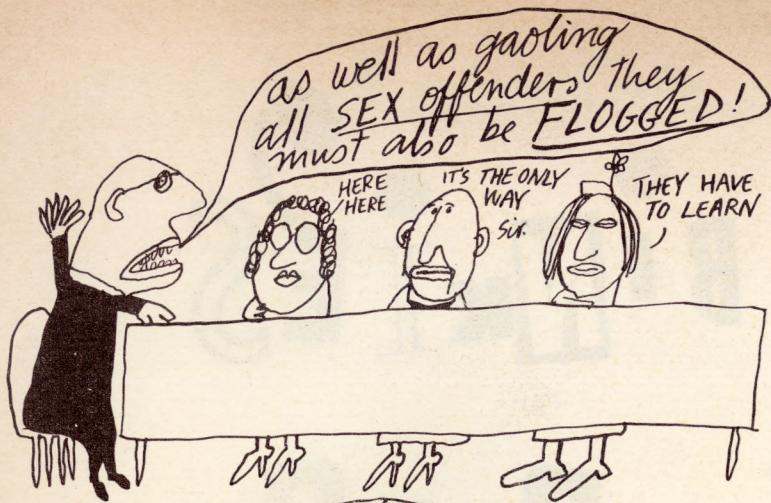 as well as gaoling
all SEX offenders they
must also be FLOGGED!
HERE
HERE
IT'S THE ONLY
WAY
Sir.
THEY HAVE
TO LEARN